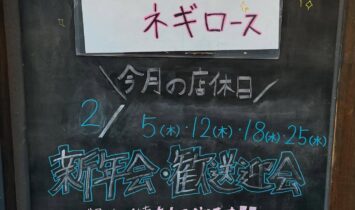 ネギロース
＼今月の店休日／
2/5(木)・12(木)・18(水)・25(水)
新年会・歓送迎会